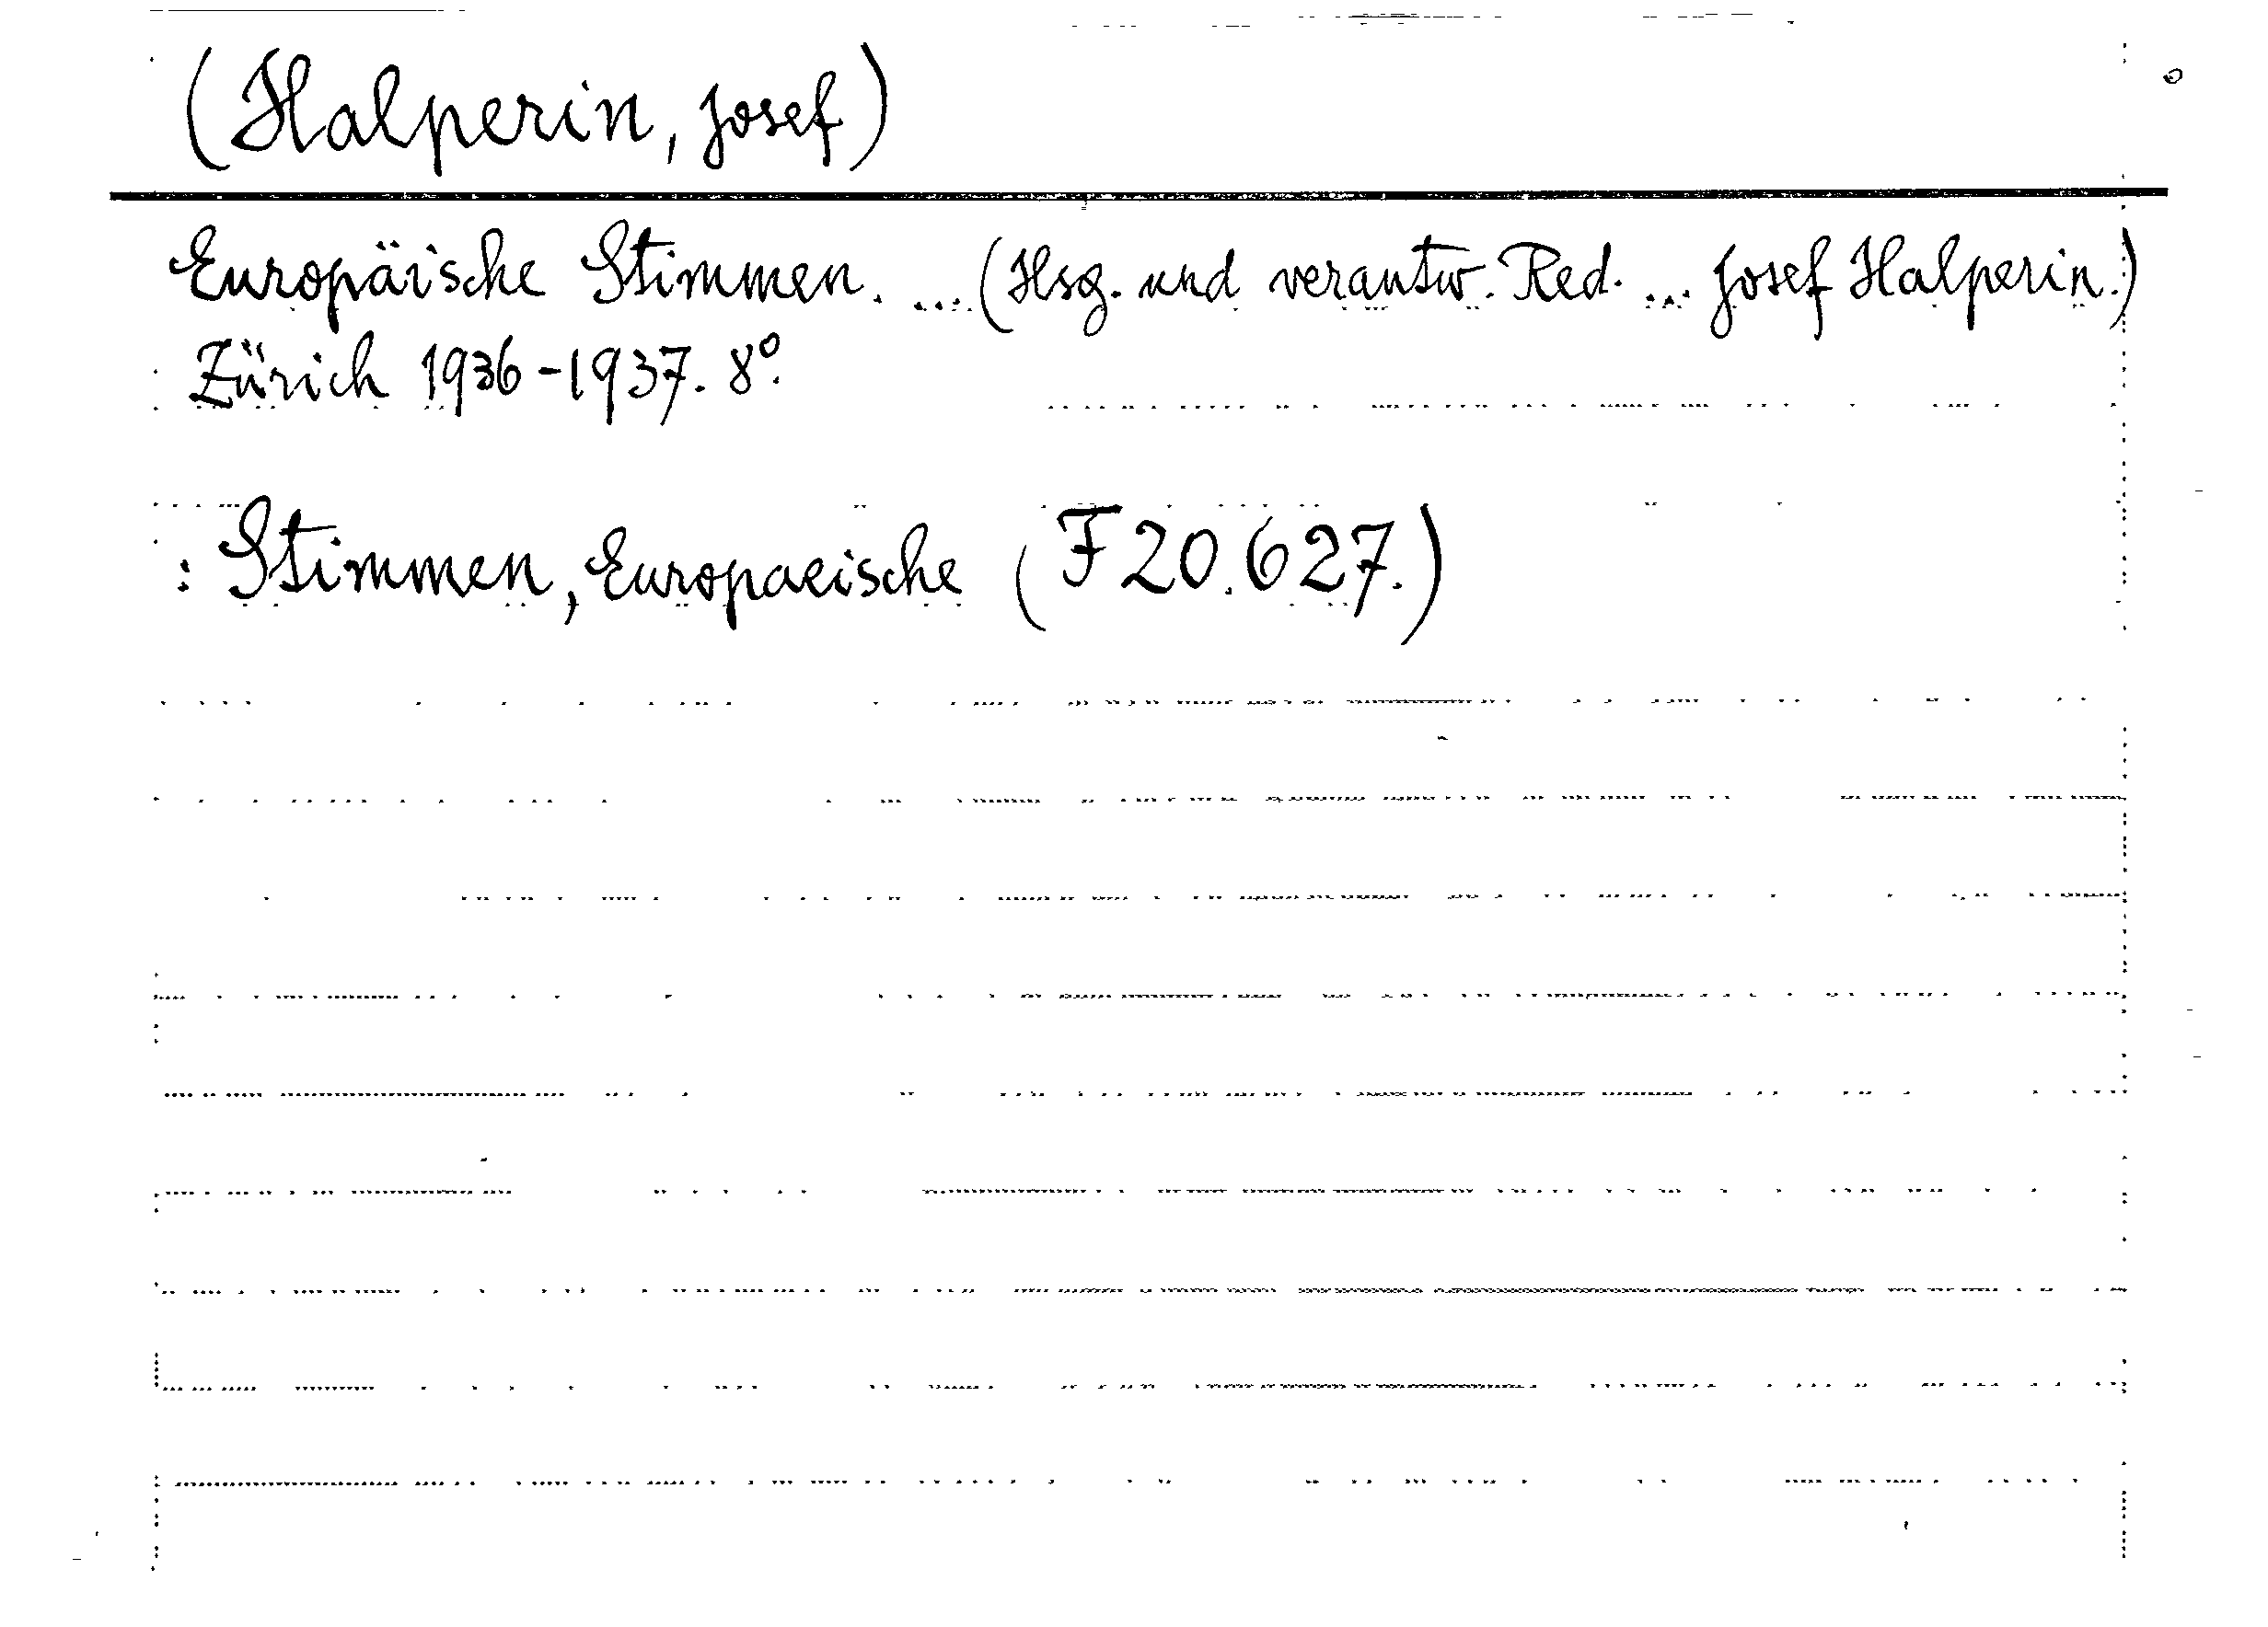 (Halperin, Josef)
Europäische Stimmen. ... (Hsg. und verantw. Red. ... Josef Halperin.)
Zürich 1936-1937. 8°.
: Stimmen, Europaeische (F 20.627.)